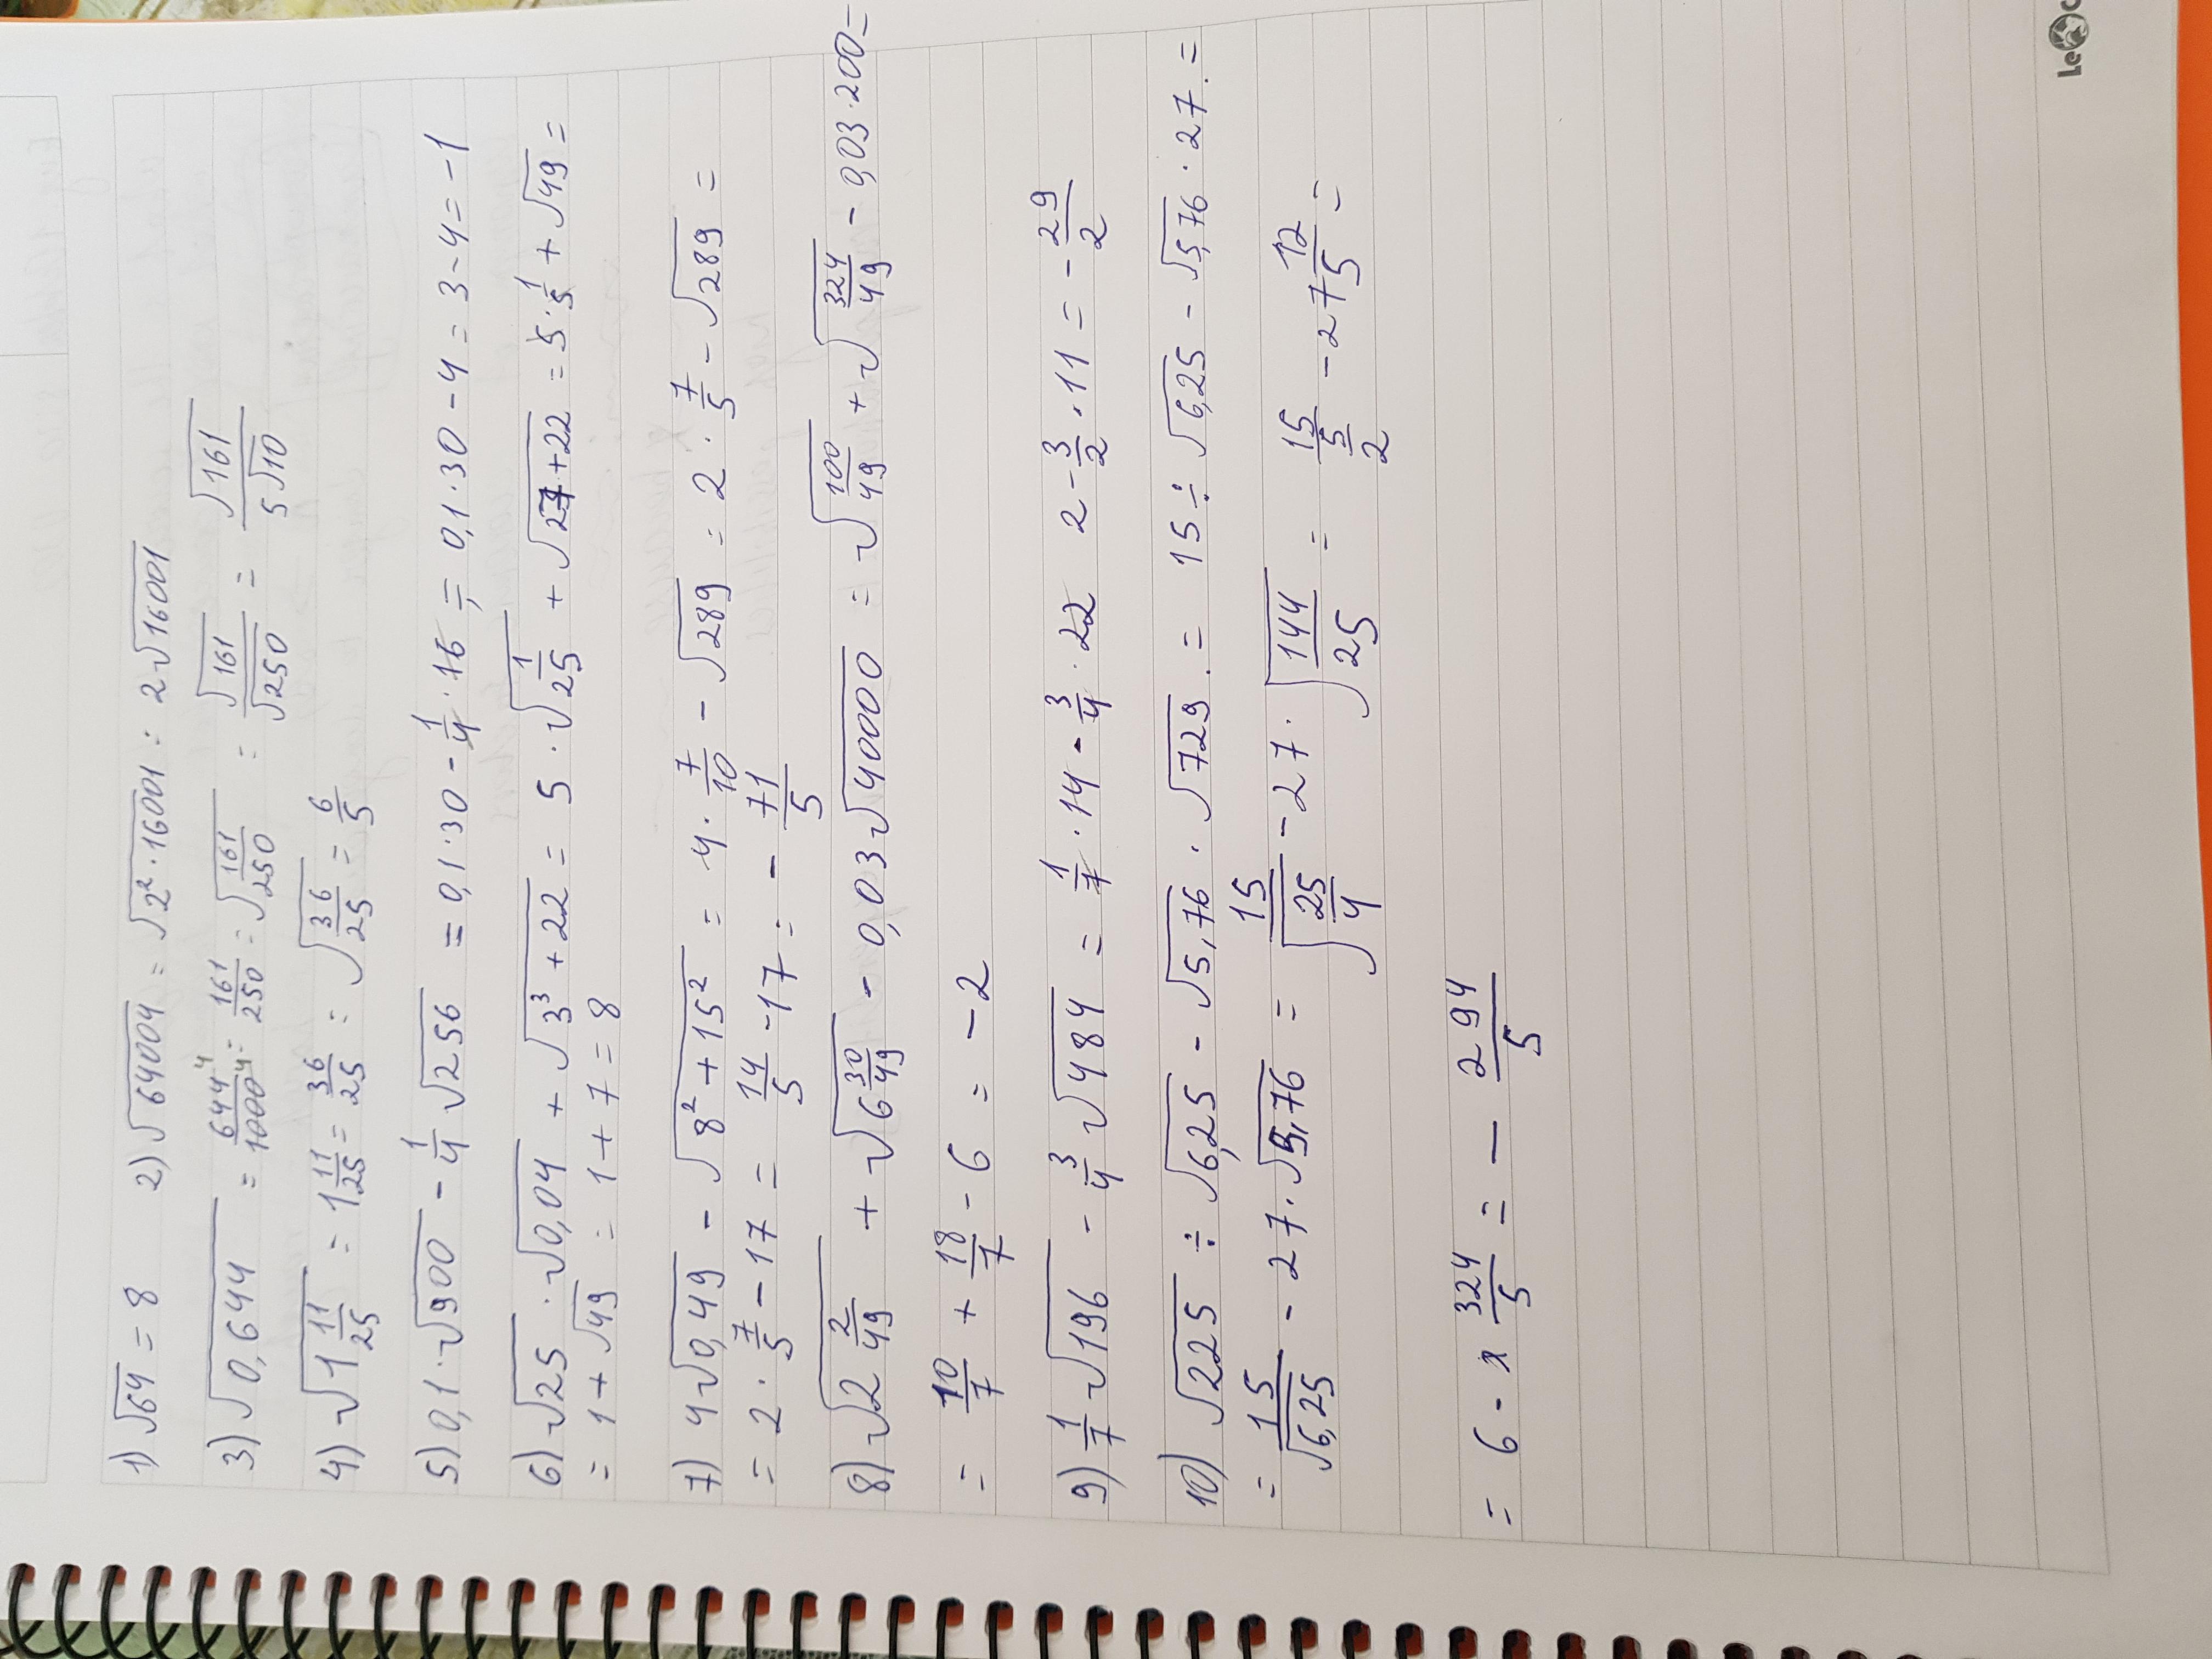 1) √64 = 8   2) √64004 = √2²·16001 = 2√16001
3) √0,644 = 644⁴/1000⁴ = 161/250 = √161/250 = √161/√250 = √161/5√10
4) √1 11/25 = 1 11/25 = 36/25 = √36/25 = 6/5
5) 0,1·√900 - 1/4 √256 = 0,1·30 - 1/4·16 = 0,1·30 - 4 = 3 - 4 = -1
6) √25 · √0,04 + √3³+22 = 5 · √1/25 + √27+22 = 5·1/5 + √49 =
= 1 + √49 = 1 + 7 = 8
7) 4√0,49 - √8²+15² = 4·7/10 - √289 = 2·7/5 - √289 =
= 2·7/5 - 17 = 14/5 - 17 = - 71/5
8) √2 2/49 + √6 30/49 - 0,03√40000 = √100/49 + √324/49 - 0,03·200 =
= 10/7 + 18/7 - 6 = -2
9) 1/7 √196 - 3/4 √484 = 1/7·14 - 3/4·22   2 - 3/2·11 = - 29/2
10) √225 ÷ √6,25 - √5,76 · √729 = 15 ÷ √6,25 - √5,76 · 27 =
= 15/√6,25 - 27·√5,76 = 15/√25/4 - 27·√144/25 = 15/5/2 - 27 12/5 =
= 6 - 324/5 = - 294/5